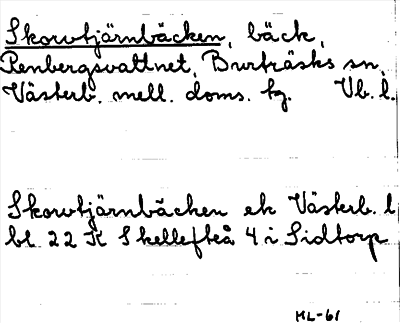 Skorvtjärnbäcken, bäck,
Renbergsvattnet, Burträsks sn,
Västerb. mell. doms. tg. Vb. l.
Skorvtjärnbäcken ek Västerb. l
bl. 22 K Skellefteå 4 i Sidtorp
HL-61